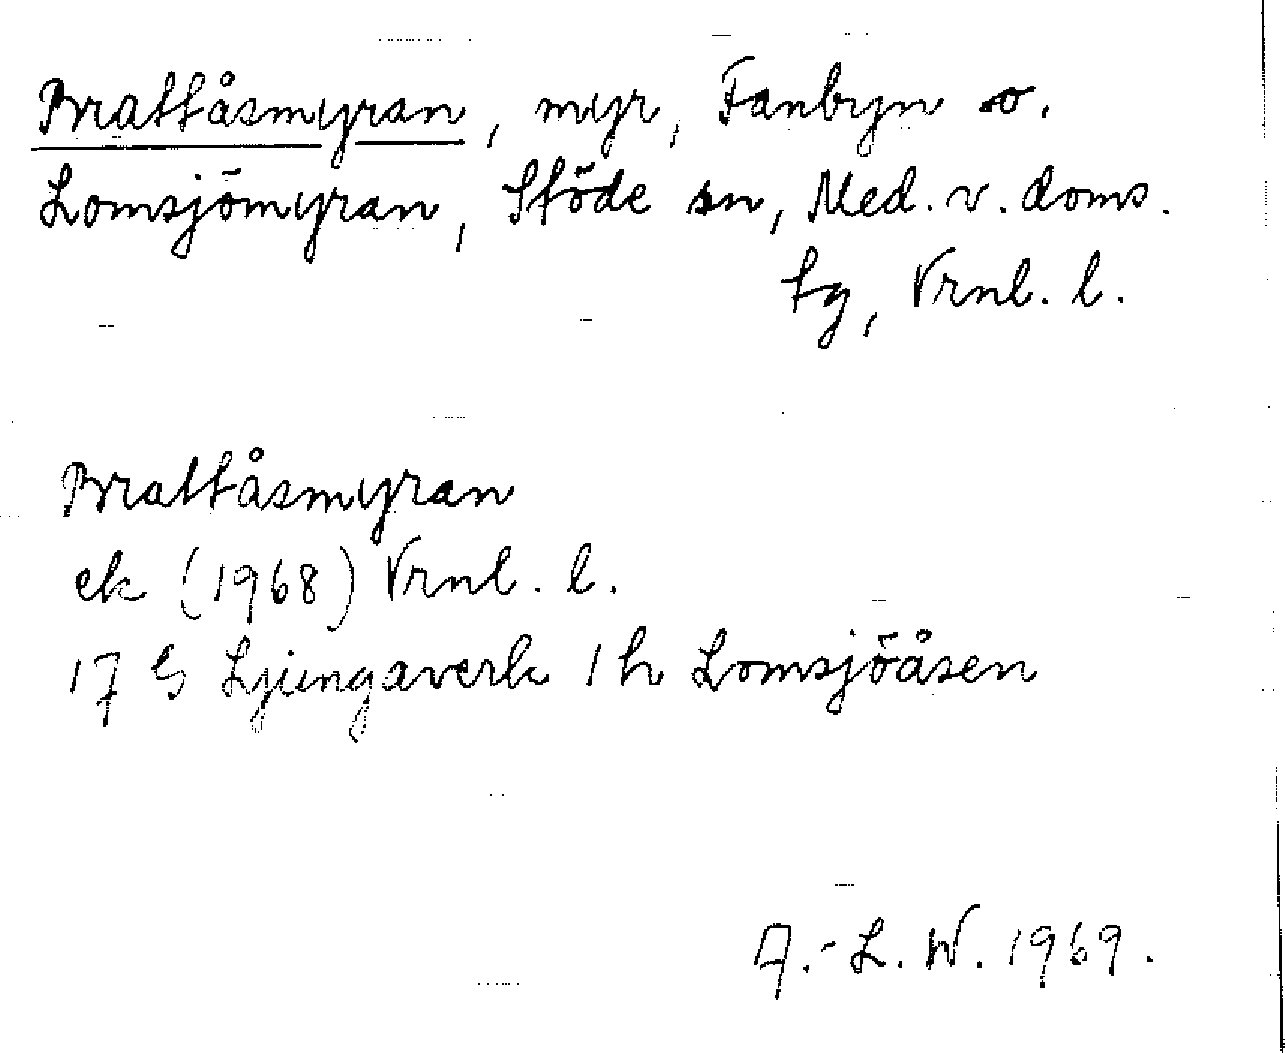 Brattåsmyran, myr, Fanbyn o.
Lomsjömyran, Stöde sn, Med. v. doms.
tg, Vrnl. l.
Brattåsmyran
ek (1968) Vrnl. l.
17 G Ljungaverk 1 h Lomsjöåsen
A.-L. W. 1969.